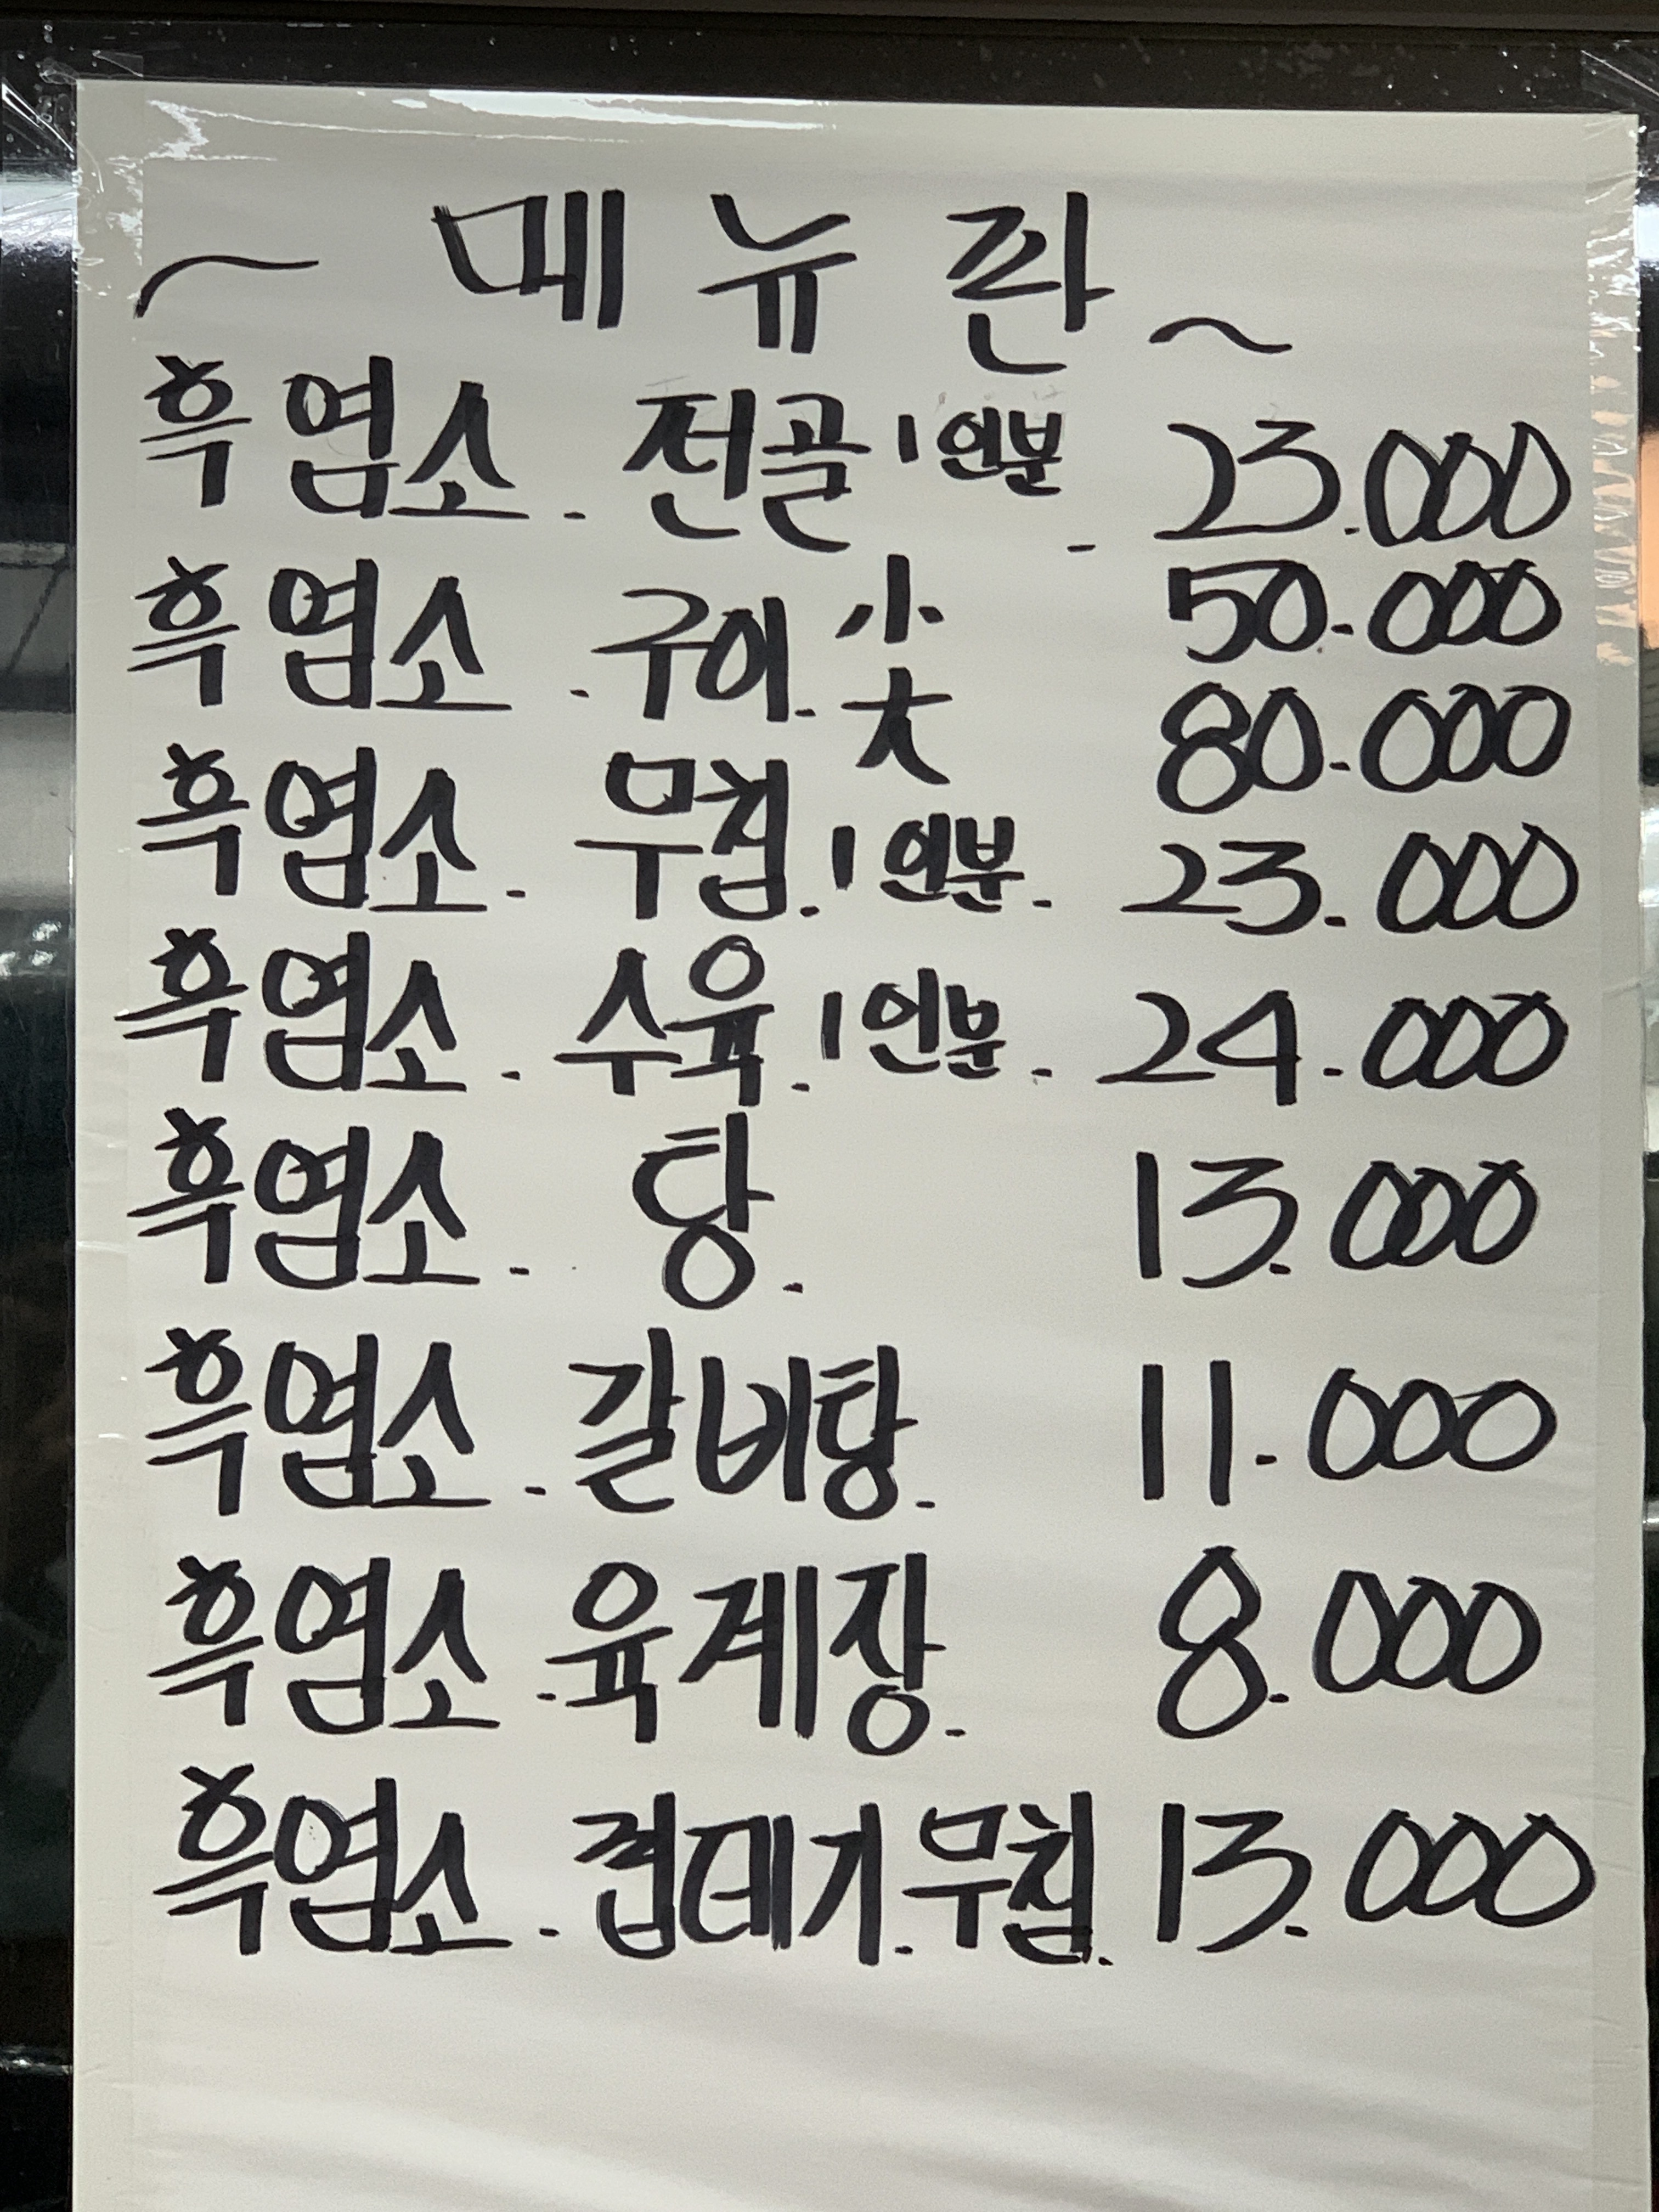 ~ 메뉴판 ~
흑염소. 전골 1인분 - 23.000
흑염소. 구이. 小 50.000
大 80.000
흑염소. 무침. 1인분. 23.000
흑염소. 수육. 1인분. 24.000
흑염소. 탕. 13.000
흑염소. 갈비탕. 11.000
흑염소. 육계장. 8.000
흑염소. 껍데기. 무침. 13.000